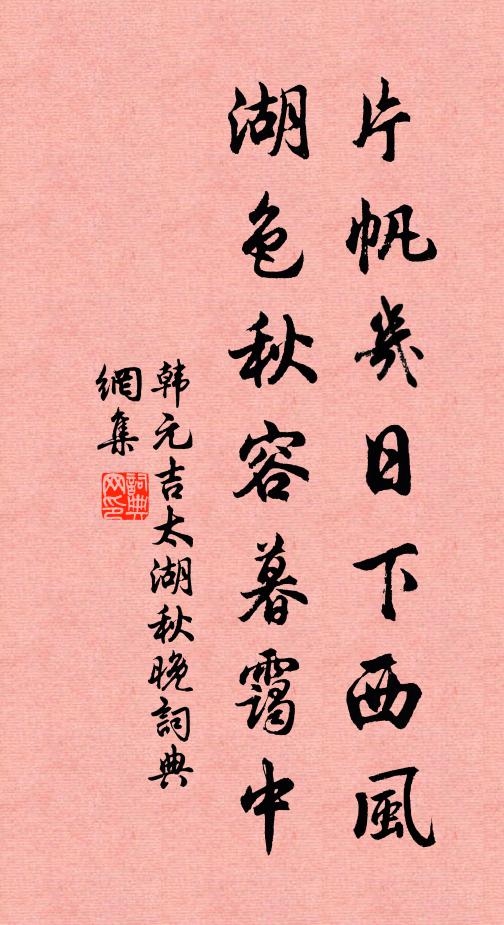 片帆幾日下西風
湖色秋容暮靄中
韩元吉太湖秋晚詞典
網集
詞典网印